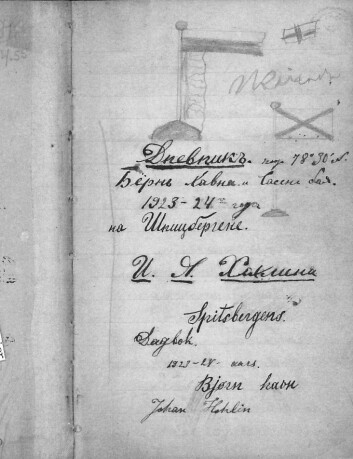 Дневникъ. под 78°30'N.
Бернъ Хавна и Сасенъ Бая.
1923-24 года
на Шпицбергене.
И. А. Хаклина
Spitsbergens.
Dagbok.
1923-24 aars.
Bjørn havn
Johan